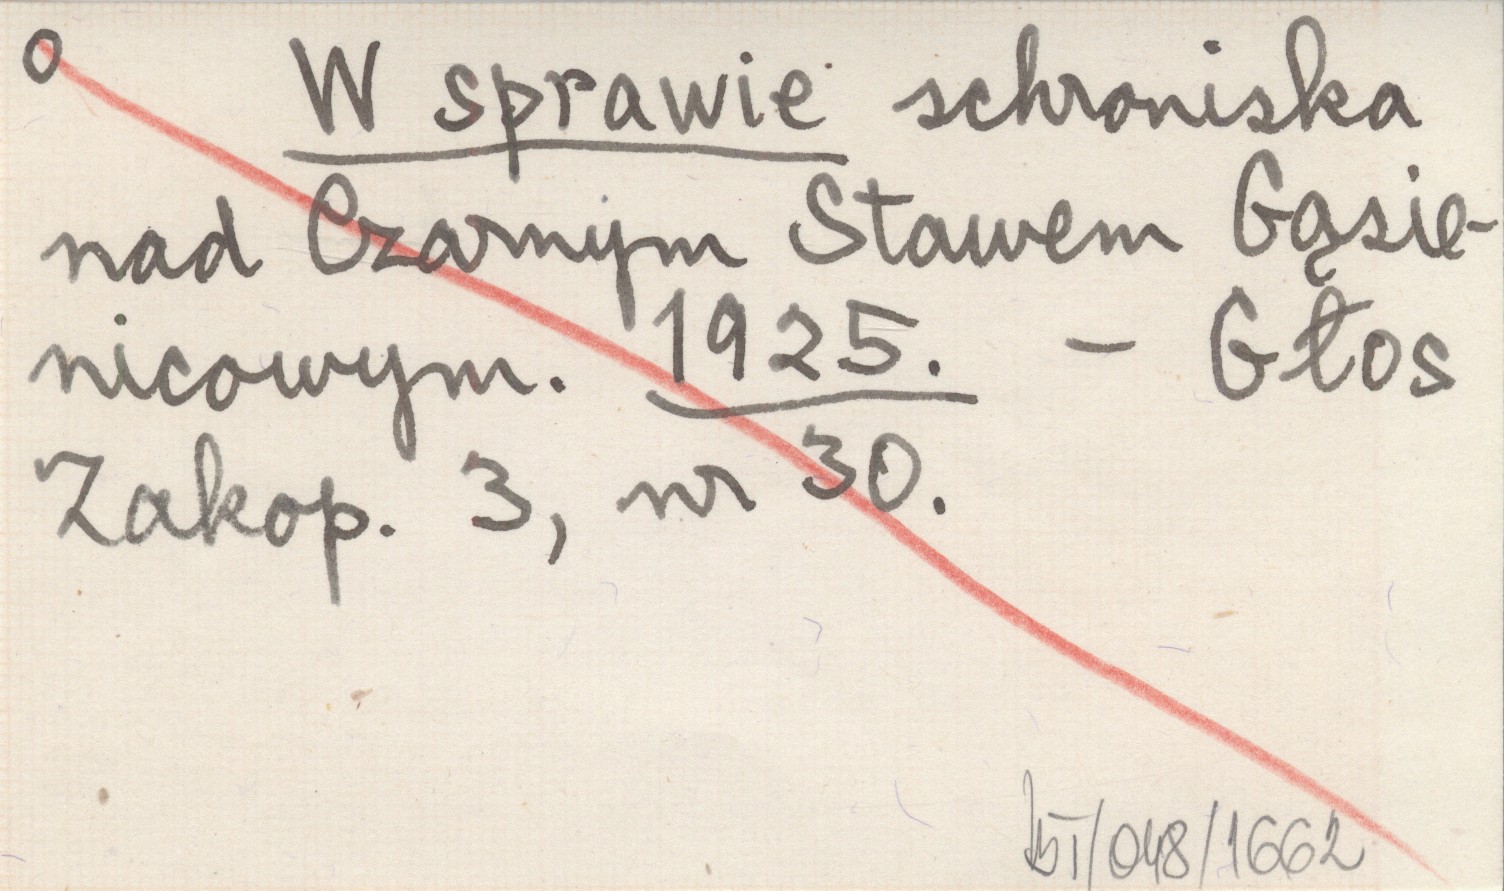 O W sprawie schroniska
nad Czarnym Stawem Gąsie-
nicowym. 1925. – Głos
Zakop. 3, nr 30.
/048/1662